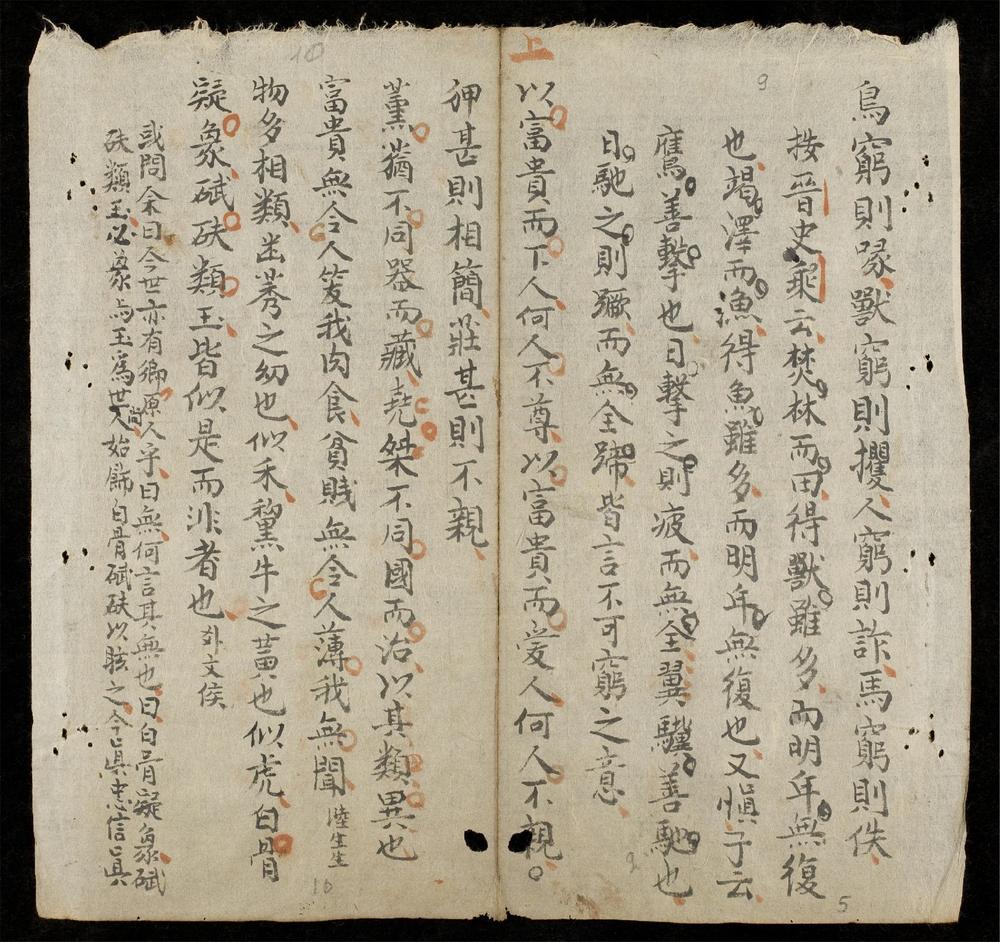 鳥窮則啄獸窮則攫人窮則詐馬窮則佚
按晉史乘云焚林而田得獸雖多而明年無復
也竭澤而漁得魚雖多而明年無復也又愼子云
鷹善擊也日擊之則疲而無全翼驥善馳也
日馳之則蹶而無全蹄皆言不可窮之意
上
以富貴而下人何人不尊以富貴而愛人何人不親
狎甚則相簡莊甚則不親
薰蕕不同器而藏堯桀不同國而治以其類異也
富貴無令人笑我肉食貧賤無令人薄我無聞 陸生生
物多相類幽莠之幼也似禾黧牛之黃也似虎白骨
疑象碔砆類玉皆似是而非者也 文侯
或問余曰今世亦有鄉原人乎曰無何言其無也曰白骨疑象碔
砆類玉必象與玉爲世人尚始飾白骨碔砆以眩之今眞忠信眞
9
10
5
9
10